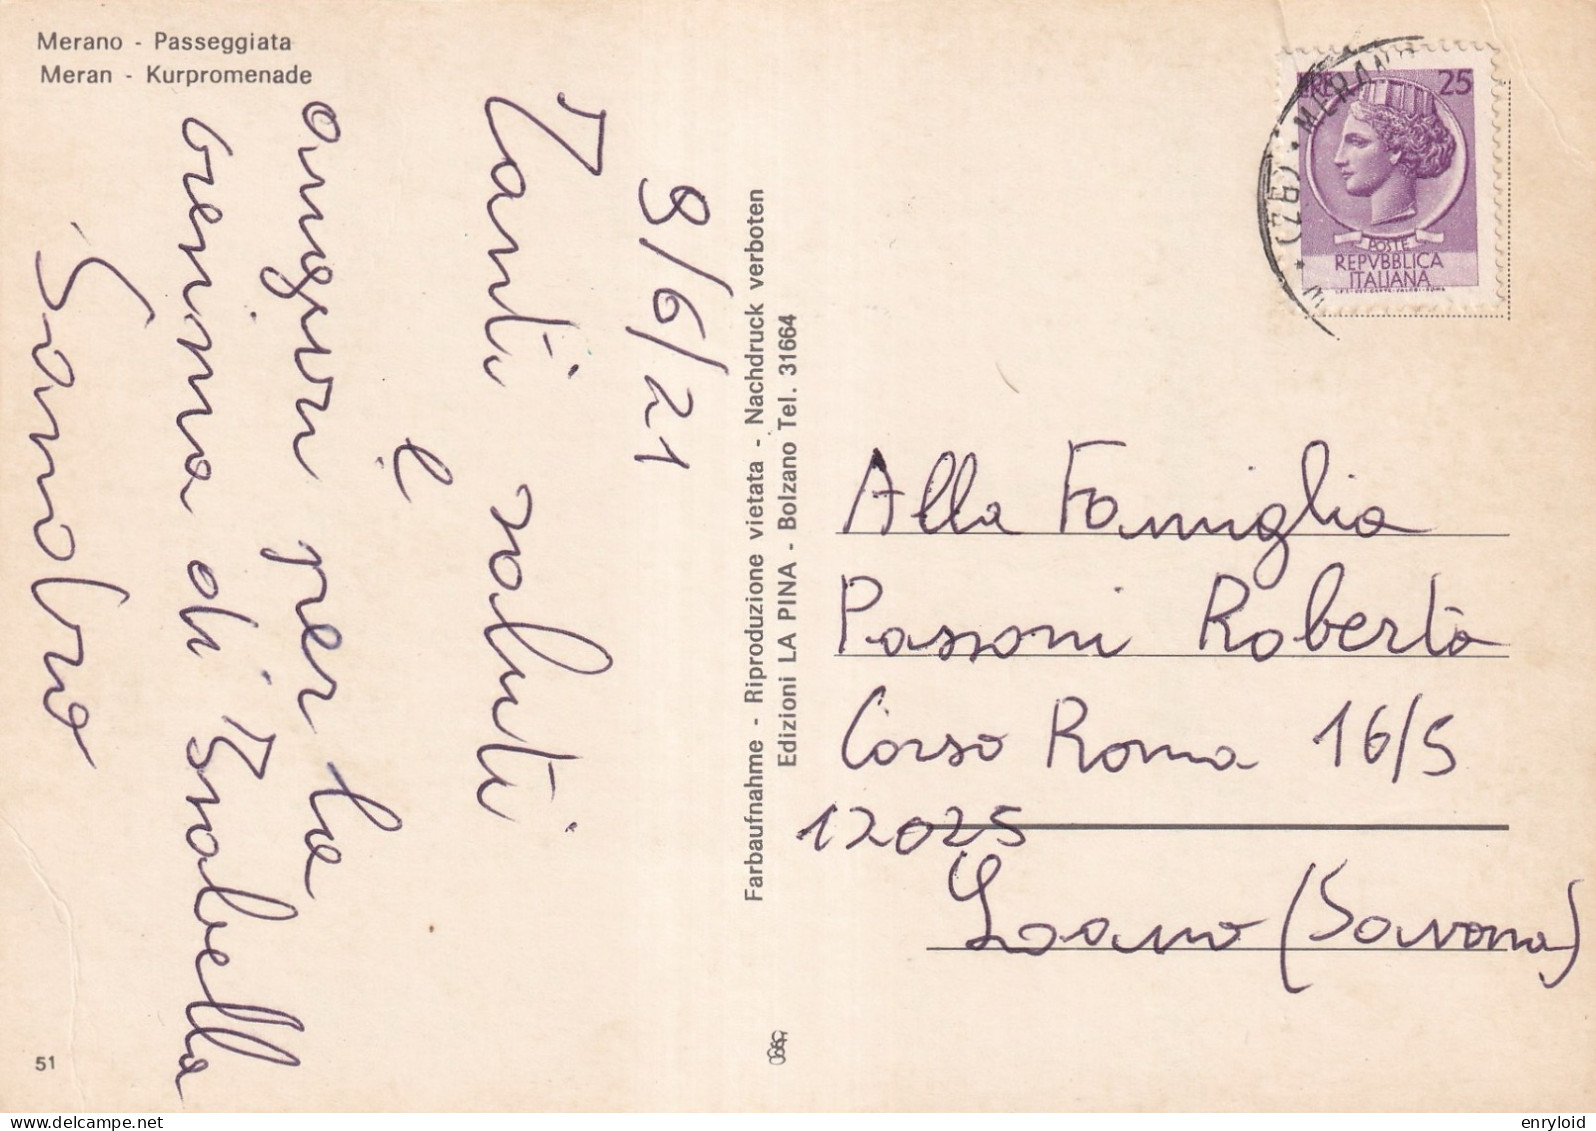 Merano - Passeggiata
Meran - Kurpromenade
9/6/71
Tanti saluti
e
auguri per la
cresima di Isabella
Sandro
Farbaufnahme - Riproduzione vietata - Nachdruck verboten
Edizioni LA PINA - Bolzano Tel. 31664
LIRE 25
POSTE
REPVBBLICA
ITALIANA
MERANO
Alla Famiglia
Passoni Roberto
Corso Roma 16/5
12025
Loano (Savona)
51
enryloid